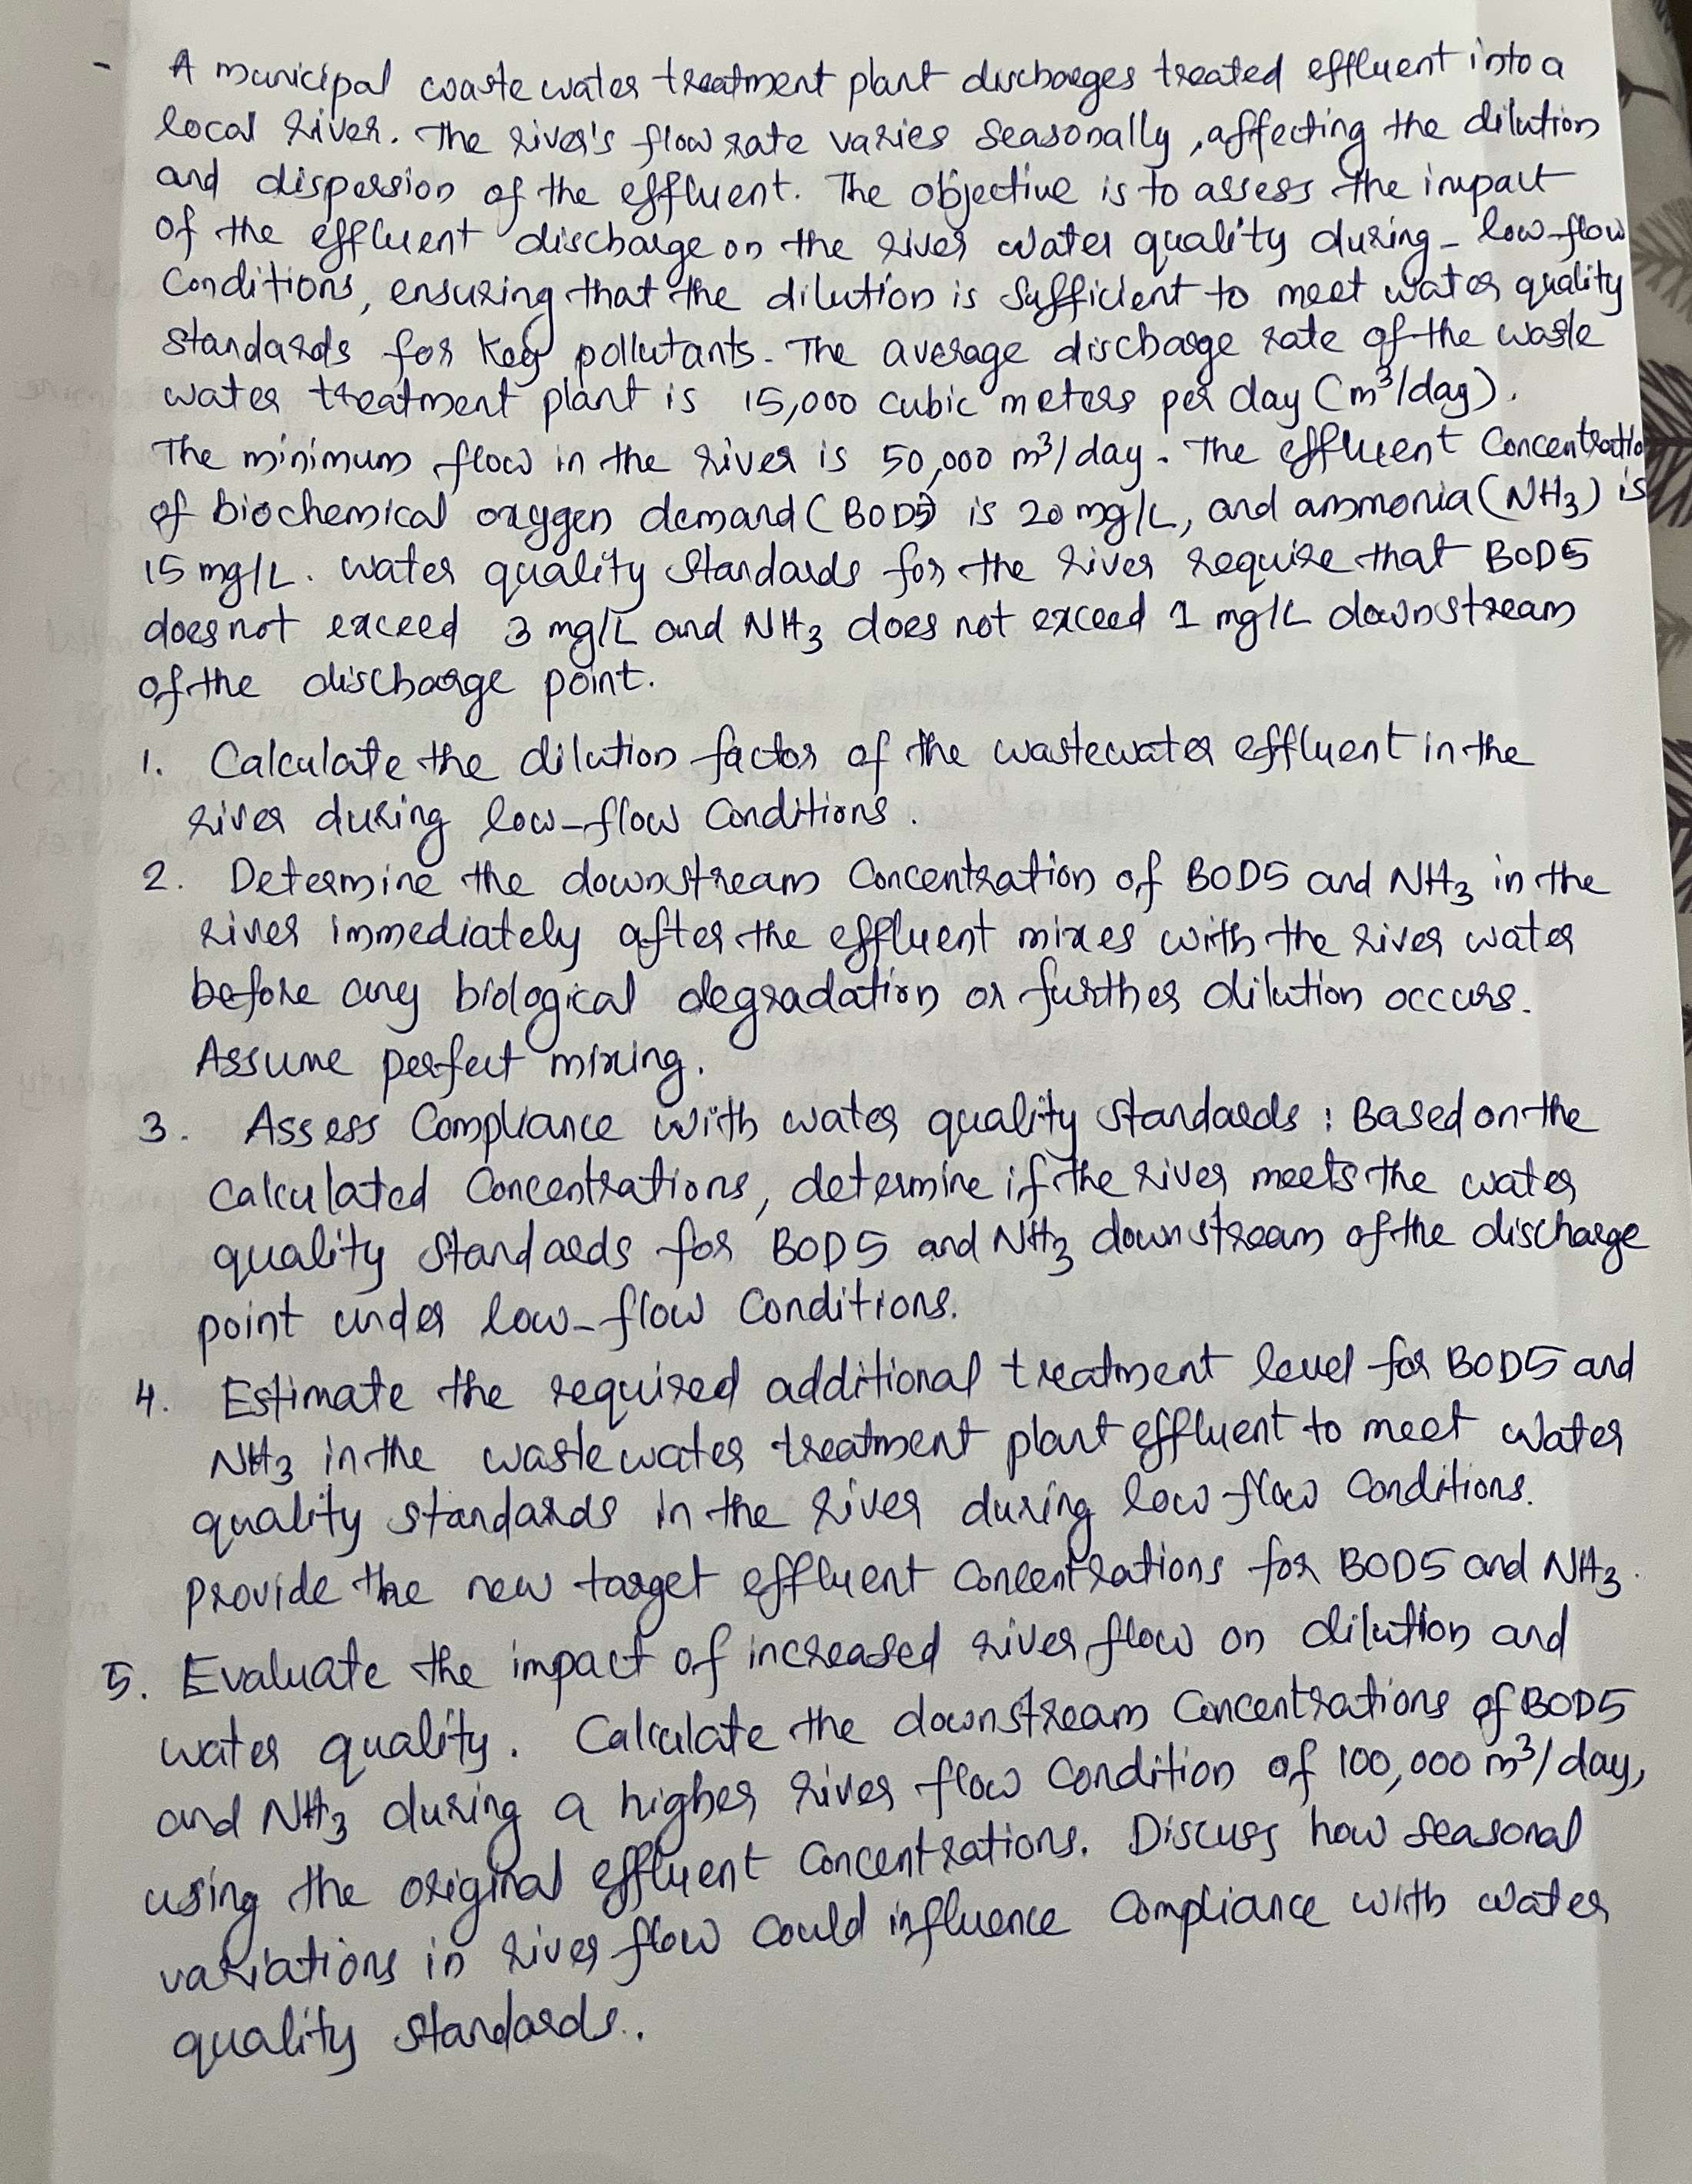 - A municipal waste water treatment plant discharges treated effluent into a
local river. The river's flow rate varies seasonally, affecting the dilution
and dispersion of the effluent. The objective is to assess the impact
of the effluent discharge on the river water quality during - low-flow
Conditions, ensuring that the dilution is sufficient to meet water quality
standards for key pollutants. The average discharge rate of the waste
water treatment plant is 15,000 cubic meters per day (m³/day).
The minimum flow in the river is 50,000 m³/day. The effluent Concentratio
of biochemical oxygen demand (BOD5) is 20 mg/L, and ammonia (NH3) is
15 mg/L. Water quality standards for the river require that BOD5
does not exceed 3 mg/L and NH3 does not exceed 1 mg/L downstream
of the discharge point.
1. Calculate the dilution factor of the wastewater effluent in the
river during low-flow Conditions.
2. Determine the downstream Concentration of BOD5 and NH3 in the
river immediately after the effluent mixes with the river water
before any biological degradation or further dilution occurs.
Assume perfect mixing.
3. Assess Compliance with water quality standards : Based on the
calculated Concentrations, determine if the river meets the water
quality standards for BOD5 and NH3 downstream of the discharge
point under low-flow Conditions.
4. Estimate the required additional treatment level for BOD5 and
NH3 in the waste water treatment plant effluent to meet water
quality standards in the river during low flow Conditions.
Provide the new target effluent Concentrations for BOD5 and NH3.
5. Evaluate the impact of increased river flow on dilution and
water quality. Calculate the downstream Concentrations of BOD5
and NH3 during a higher river flow Condition of 100,000 m³/day,
using the original effluent Concentrations. Discuss how seasonal
variations in river flow could influence Compliance with water
quality standards.